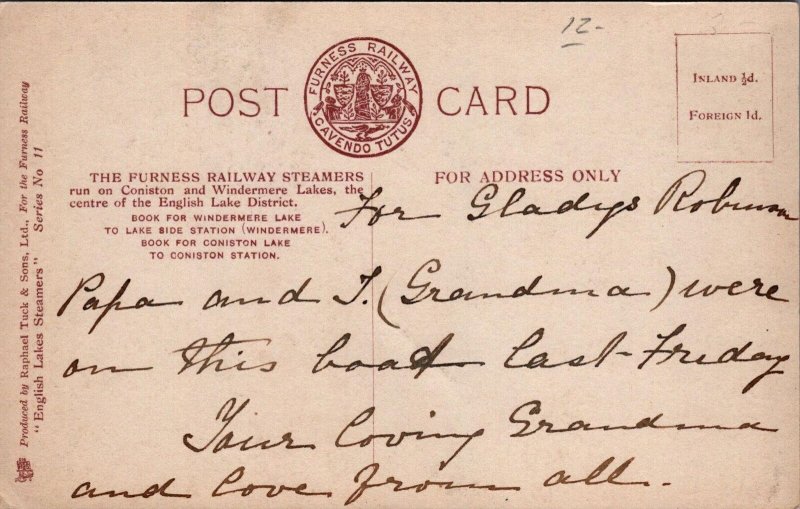 12-
POST CARD
FURNESS RAILWAY
CAVENDO TUTUS
INLAND ½d.
FOREIGN 1d.
THE FURNESS RAILWAY STEAMERS
run on Coniston and Windermere Lakes, the
centre of the English Lake District.
BOOK FOR WINDERMERE LAKE
TO LAKE SIDE STATION (WINDERMERE).
BOOK FOR CONISTON LAKE
TO CONISTON STATION.
FOR ADDRESS ONLY
For Gladys Robinson
Papa and I. (Grandma) were
on this boat last Friday
Your loving Grandma
and love from all.
Produced by Raphael Tuck & Sons, Ltd., For the Furness Railway
"English Lakes Steamers" Series No 11